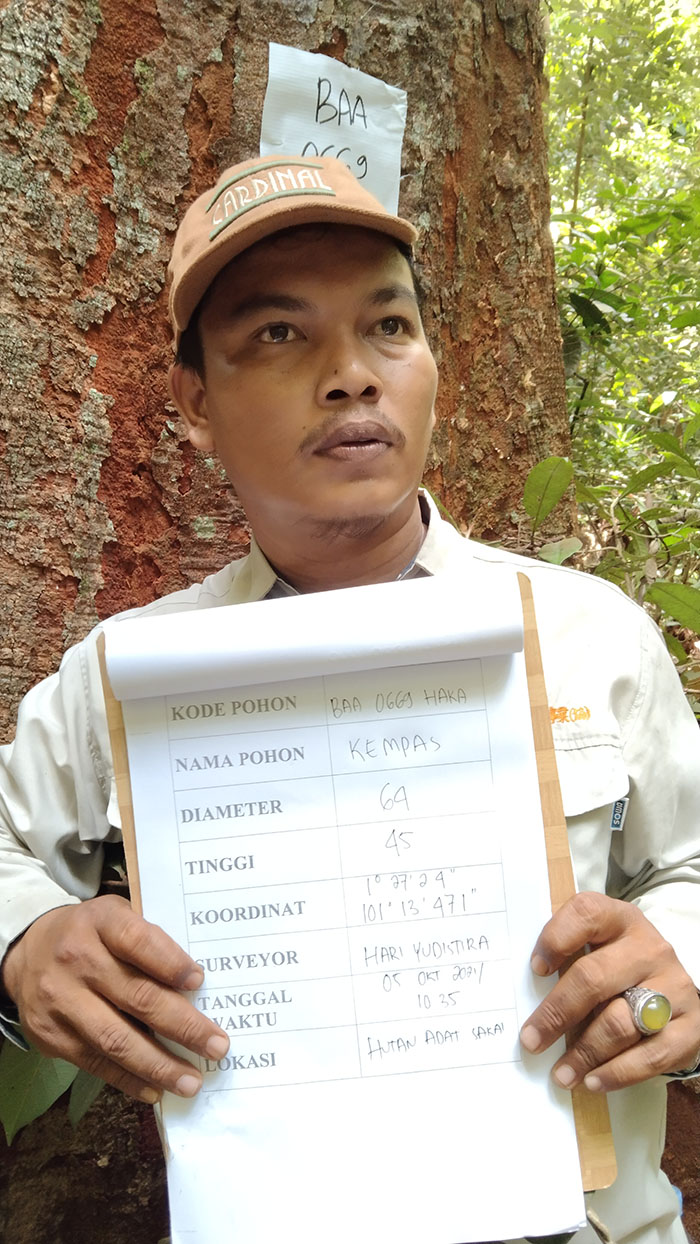 BAA
0669
CARDINAL
KODE POHON BAA 0669 HAKA
NAMA POHON KEMPAS
DIAMETER 64
TINGGI 45
KOORDINAT 1° 27' 24"
101° 13' 471"
SURVEYOR HARI YUDISTIRA
TANGGAL 05 OKT 2021/
WAKTU 10 35
LOKASI HUTAN ADAT SAKAI